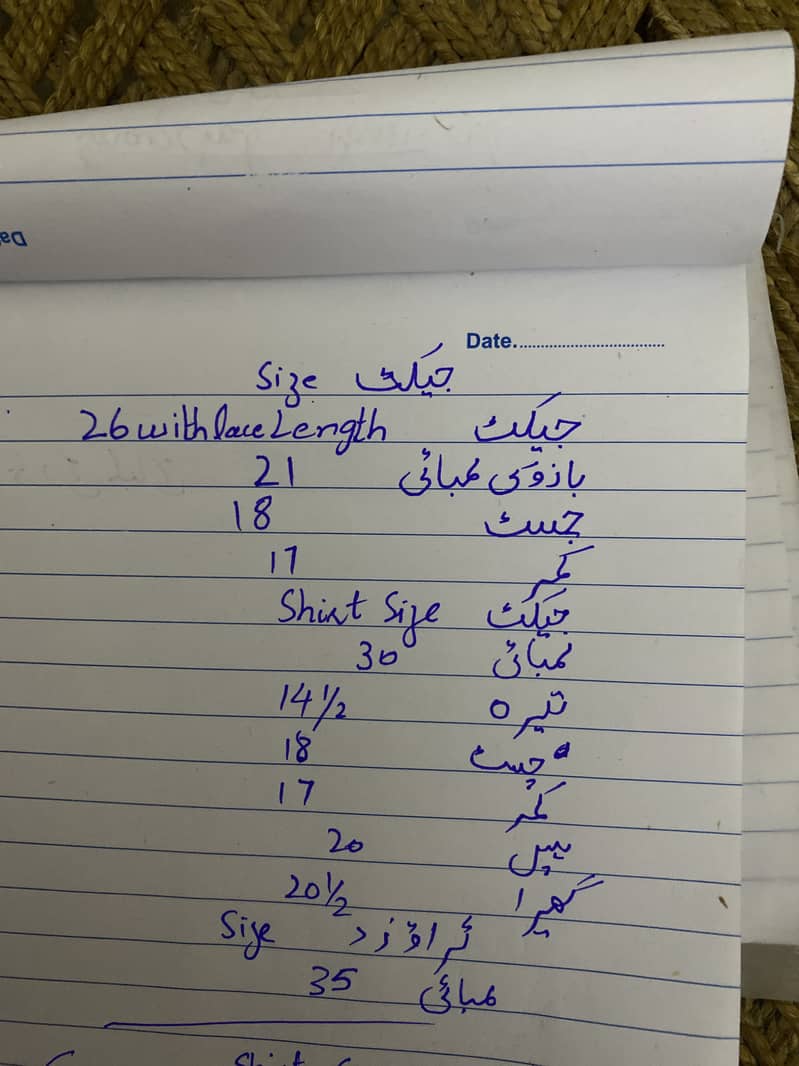 Date
جیکٹ Size
جیکٹ 26 with lace Length
بازو کی لمبائی 21
جسٹ 18
کمر 17
جیکٹ Shirt Size
لمبائی 30
تیرہ 14 1/2
چسٹ 18
کمر 17
ہیپ 20
گھیرا 20 1/2
ٹراؤزر Size
لمبائی 35
Shirt